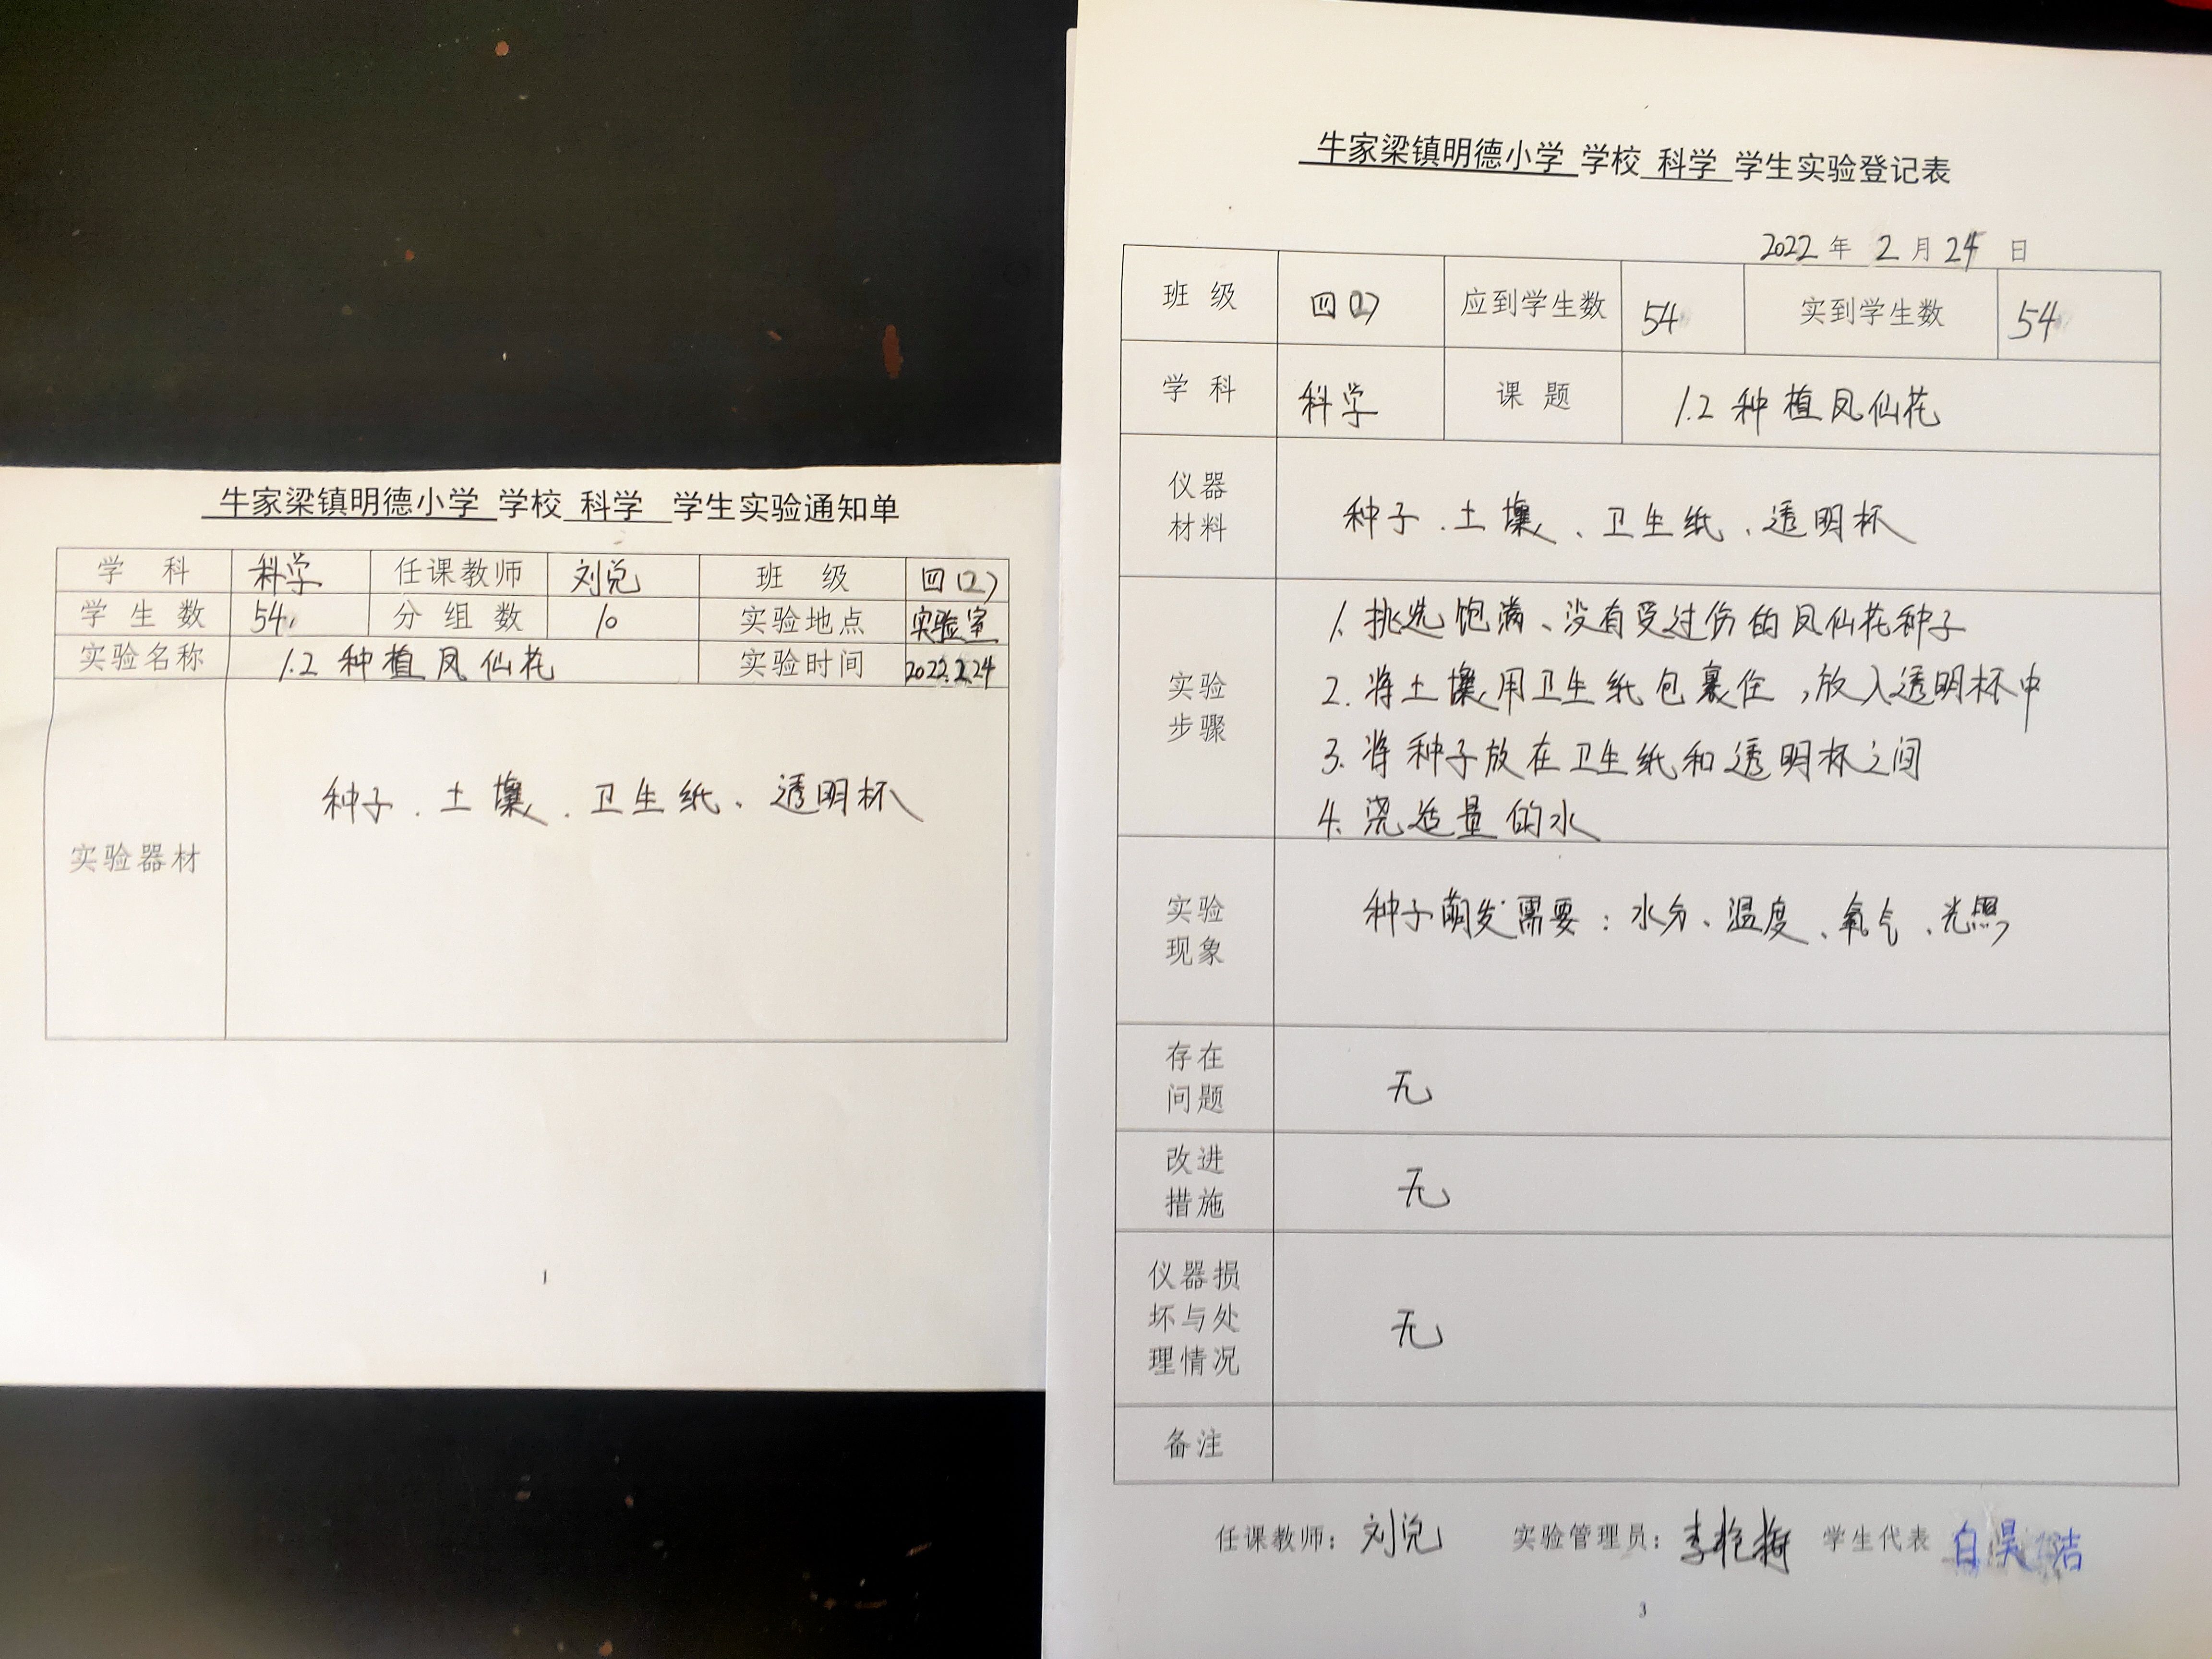 牛家梁镇明德小学 学校 科学 学生实验通知单
学 科 科学 任课教师 刘兑 班 级 四(2)
学生数 54 分组数 10 实验地点 实验室
实验名称 1.2 种植凤仙花 实验时间 2022.2.24
实验器材 种子、土壤、卫生纸、透明杯
1
牛家梁镇明德小学 学校 科学 学生实验登记表
2022 年 2 月 24 日
班 级 四(2) 应到学生数 54 实到学生数 54
学 科 科学 课 题 1.2 种植凤仙花
仪器
材料
种子、土壤、卫生纸、透明杯
实验
步骤
1. 挑选饱满、没有受过伤的凤仙花种子
2. 将土壤用卫生纸包裹住,放入透明杯中
3. 将种子放在卫生纸和透明杯之间
4. 浇适量的水
实验
现象
种子萌发需要:水分、温度、氧气、光照
存在
问题
无
改进
措施
无
仪器损
坏与处
理情况
无
备注
任课教师: 刘兑 实验管理员: 李艳梅 学生代表 白昊洁
3